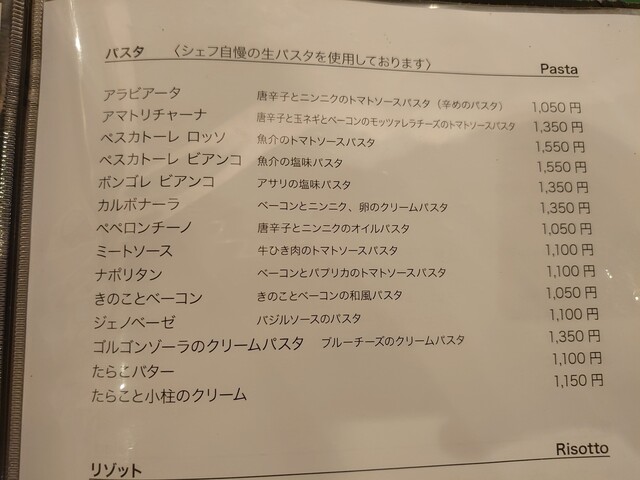 パスタ 〈シェフ自慢の生パスタを使用しております〉 Pasta
アラビアータ 唐辛子とニンニクのトマトソースパスタ（辛めのパスタ） 1,050 円
アマトリチャーナ 唐辛子と玉ネギとベーコンのモッツァレラチーズのトマトソースパスタ 1,350 円
ペスカトーレ ロッソ 魚介のトマトソースパスタ 1,550 円
ペスカトーレ ビアンコ 魚介の塩味パスタ 1,550 円
ボンゴレ ビアンコ アサリの塩味パスタ 1,350 円
カルボナーラ ベーコンとニンニク、卵のクリームパスタ 1,350 円
ペペロンチーノ 唐辛子とニンニクのオイルパスタ 1,050 円
ミートソース 牛ひき肉のトマトソースパスタ 1,100 円
ナポリタン ベーコンとパプリカのトマトソースパスタ 1,100 円
きのことベーコン きのことベーコンの和風パスタ 1,050 円
ジェノベーゼ バジルソースのパスタ 1,100 円
ゴルゴンゾーラのクリームパスタ ブルーチーズのクリームパスタ 1,350 円
たらこバター 1,100 円
たらこと小柱のクリーム 1,150 円
リゾット Risotto